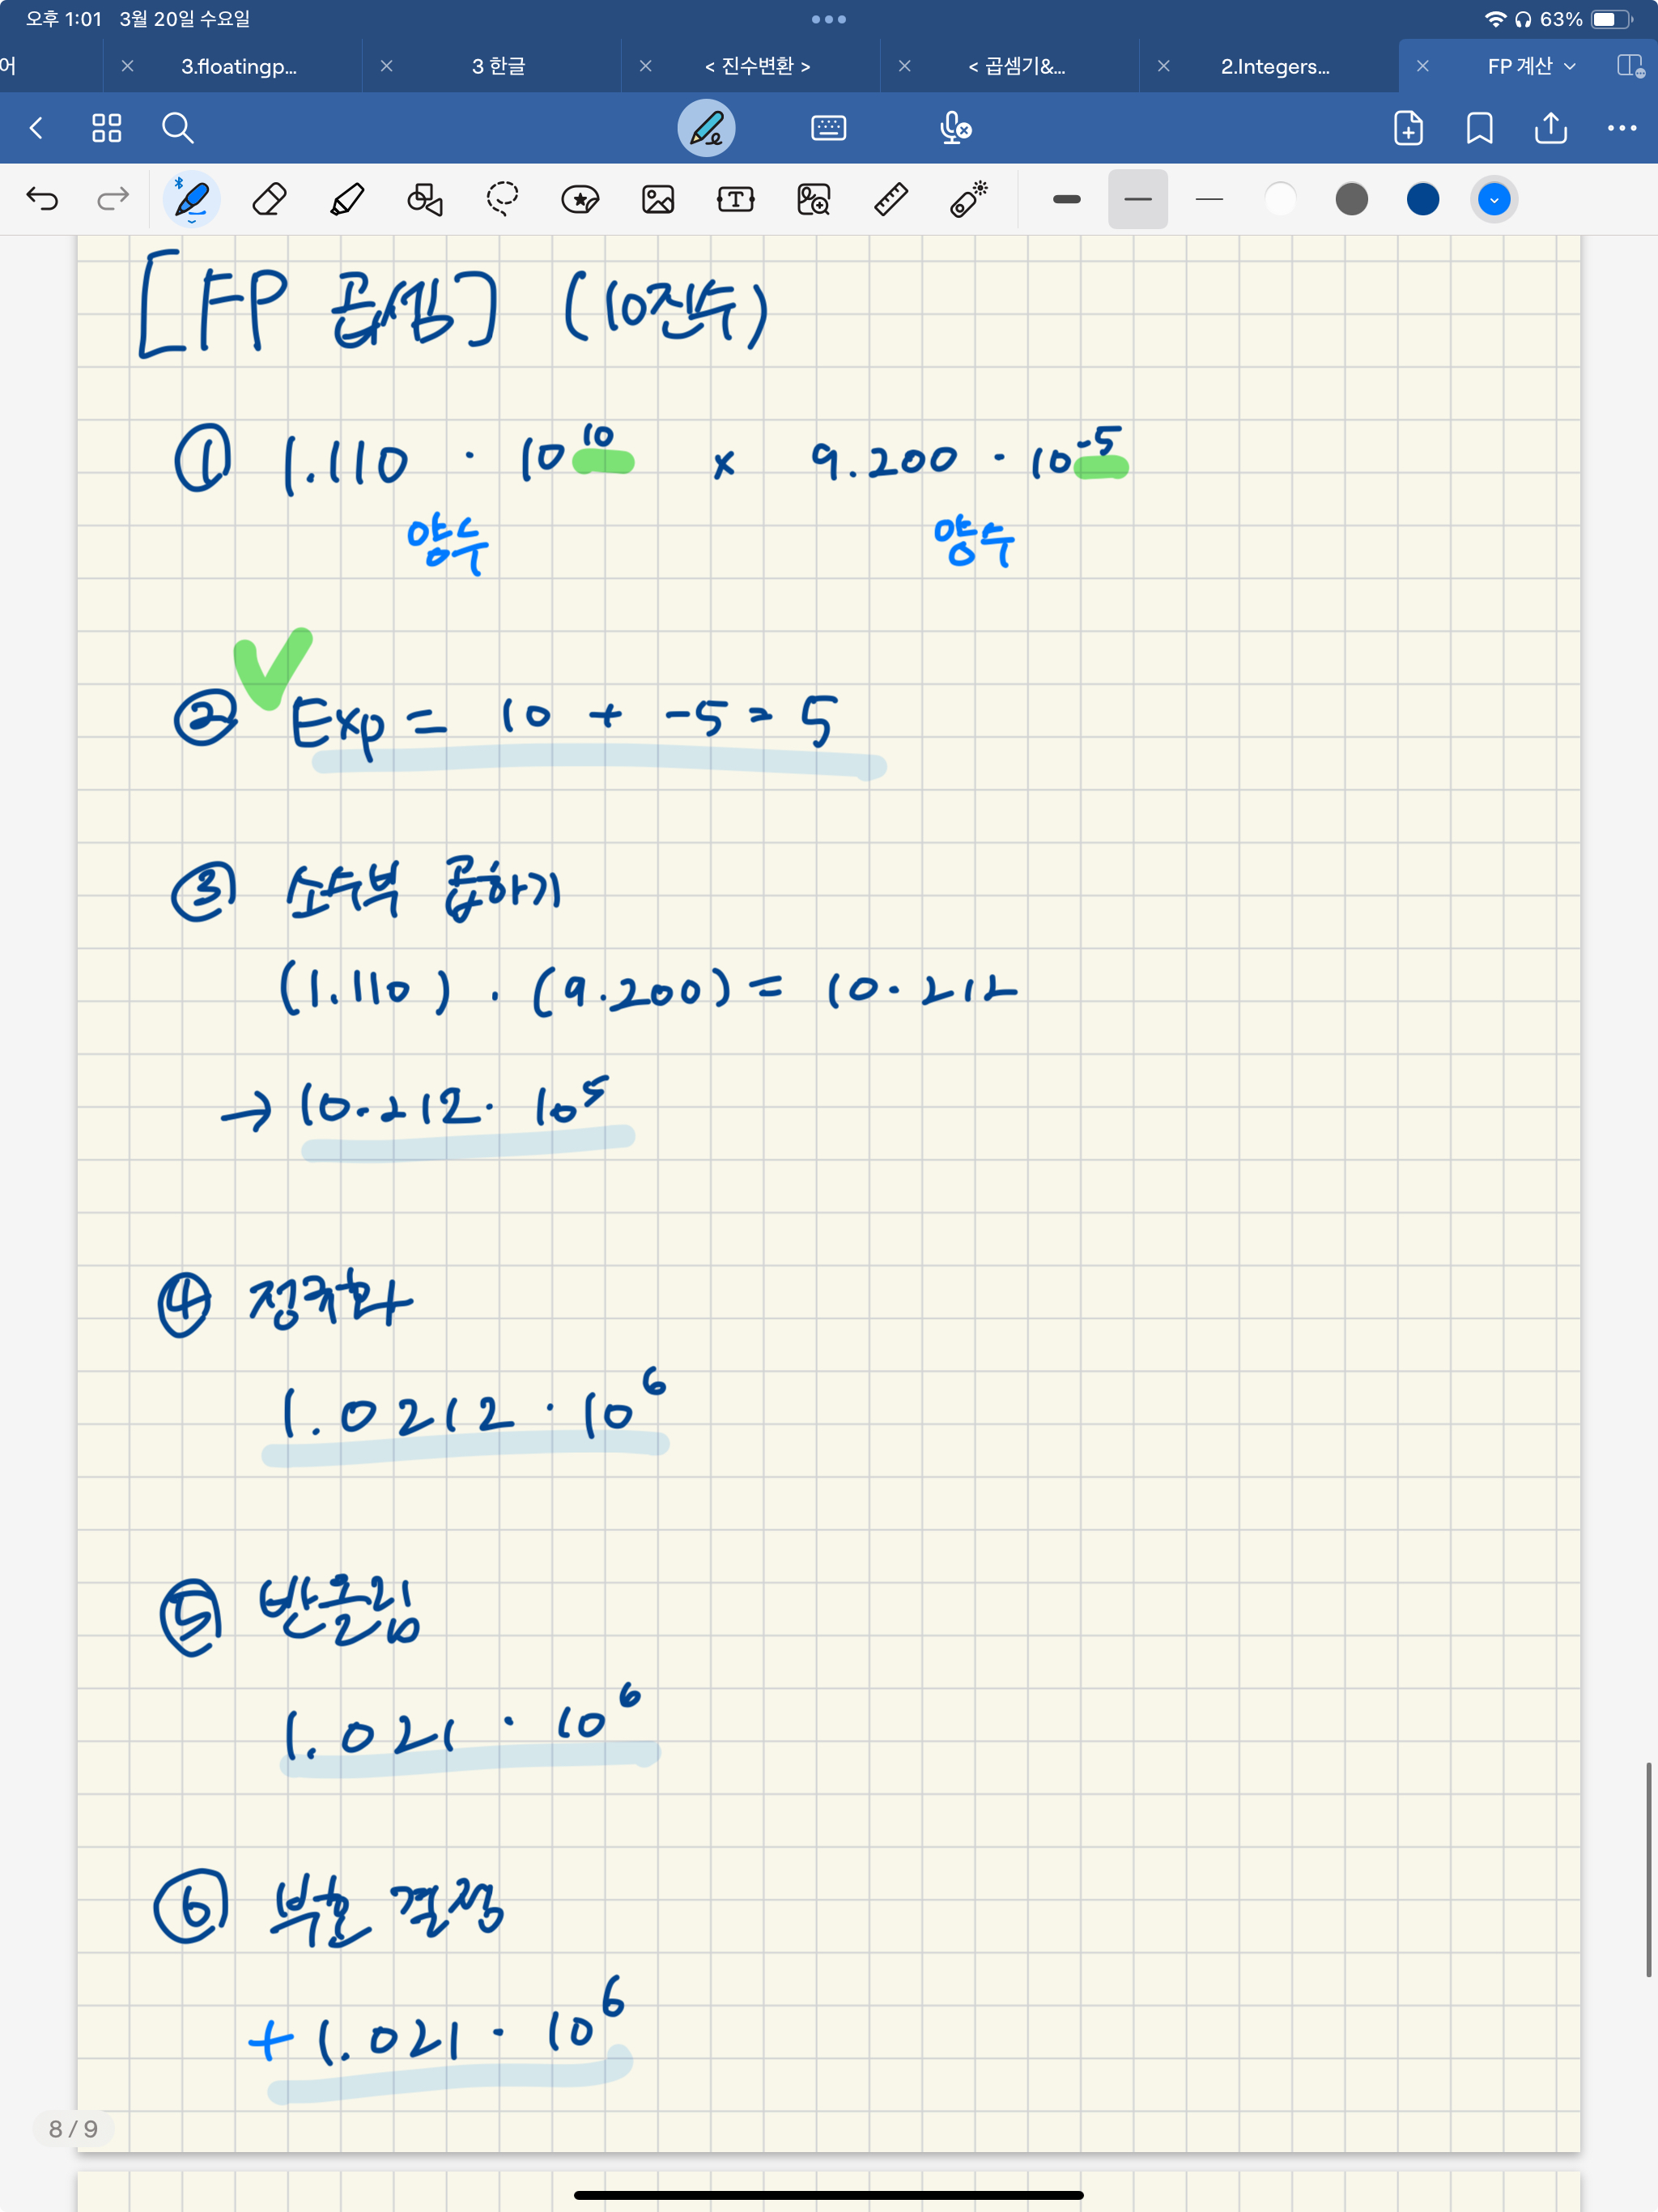 오후 1:01 3월 20일 수요일
63%
어
3.floatingp...
3 한글
< 진수변환 >
< 곱셈기&...
2.Integers...
FP 계산
[FP 곱셈] (10진수)
① 1.110 · 10^10 × 9.200 · 10^-5
양수 양수
② Exp = 10 + -5 = 5
③ 소수부 곱하기
(1.110) · (9.200) = 10.212
→ 10.212 · 10^5
④ 정규화
1.0212 · 10^6
⑤ 반올림
1.021 · 10^6
⑥ 부호 결정
+ 1.021 · 10^6
8 / 9